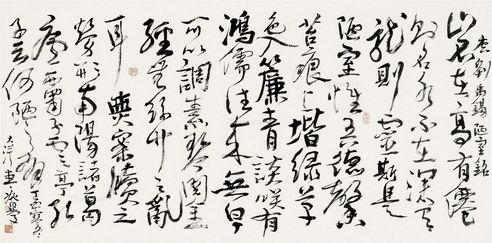 唐劉禹錫陋室銘
山不在高有僊
則名水不在深有
龍則靈斯是
陋室惟吾德馨
苔痕上階緑草
色入簾青談笑有
鴻儒往来無白丁
可以調素琴閲金
經無絲竹之亂
耳無案牘之
勞形南陽諸葛
廬西蜀子雲亭孔
子云何陋之有